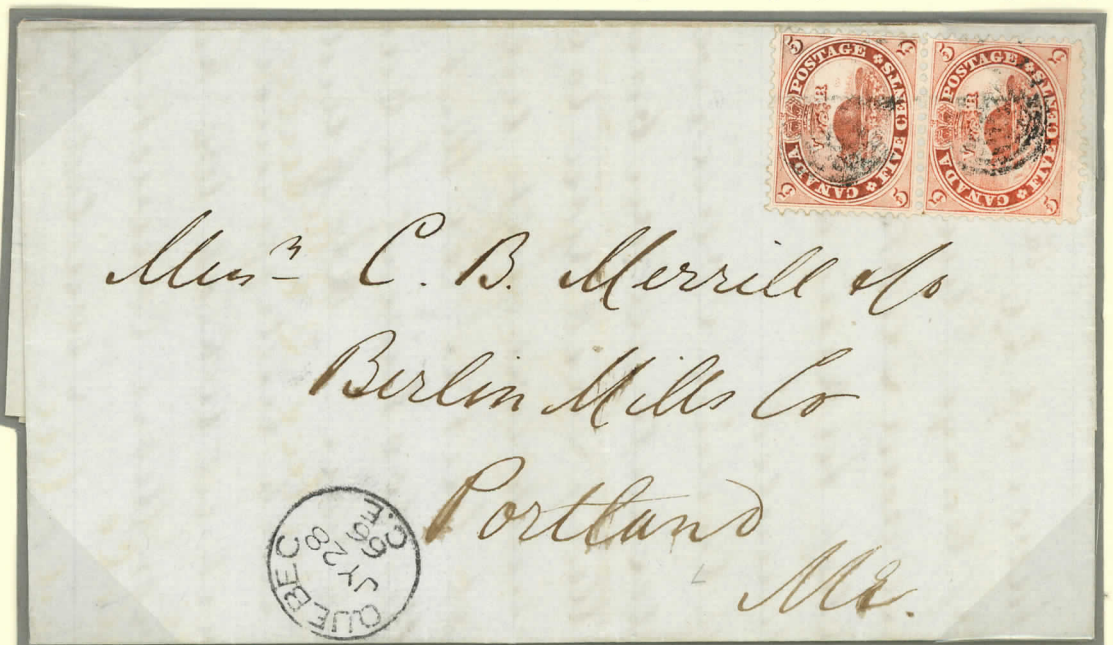 5 5
CANADA POSTAGE
FIVE CENTS
5 5
5 5
CANADA POSTAGE
FIVE CENTS
5 5
Messrs C. B. Merrill & Co
Berlin Mills Co
Portland
Me.
QUEBEC
JY 28
66
C.E.